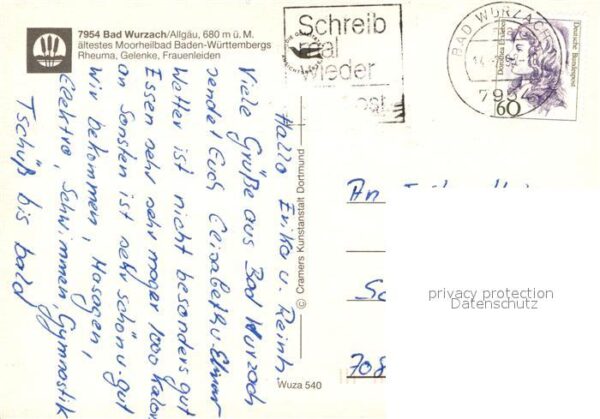 7954 Bad Wurzach/Allgäu, 680 m ü. M.
ältestes Moorheilbad Baden-Württembergs
Rheuma, Gelenke, Frauenleiden
Schreib
mal
wieder
Post
BAD WURZACH
7954
Dorothea Erxleben
Deutsche Bundespost
60
Hallo Erika u. Reinh.
Viele Grüße aus Bad Wurzach
sendet Euch Elisabeth u. Elmar
Wetter ist nicht besonders gut
Essen sehr sehr mager 1000 Kalor
an Sonsten ist sehr schön u. gut
Wir bekommen, Masagen,
Elektro, Schwimmen, Gymnastik
Tschüß bis bald
© Cramers Kunstanstalt Dortmund
Wuza 540
An
privacy protection
Datenschutz